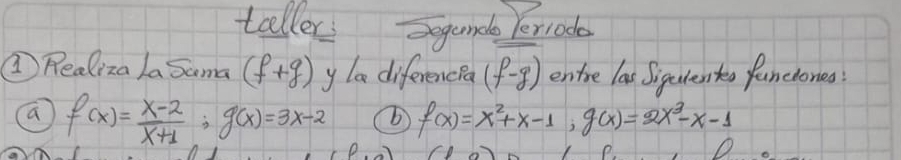 taller: Segundo Periodo
① Realiza la Suma (f+g) y la diferencia (f-g) entre las Siguientes funciones:
ⓐ f(x)= x-2/x+1 ; g(x)=3x-2 ⓑ f(x)=x²+x-1 ; g(x)=2x²-x-1